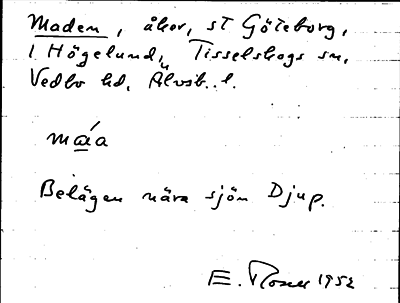 Maden, åker, st Göteborg,
i Högelund, Tisselskogs sn,
Vedbo hd, Älvsb. l.
ma̲´a
Belägen nära sjön Djup.
E. Rosell 1952